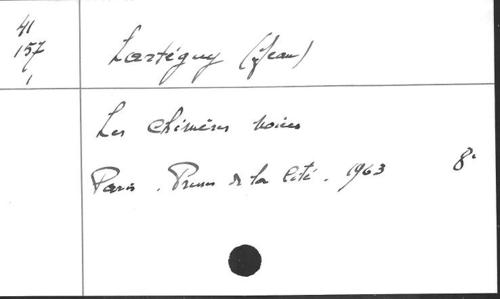 41
157
1
Lartéguy (Jean)
Les chimères noires
Paris. Presses de la Cité. 1963 8°